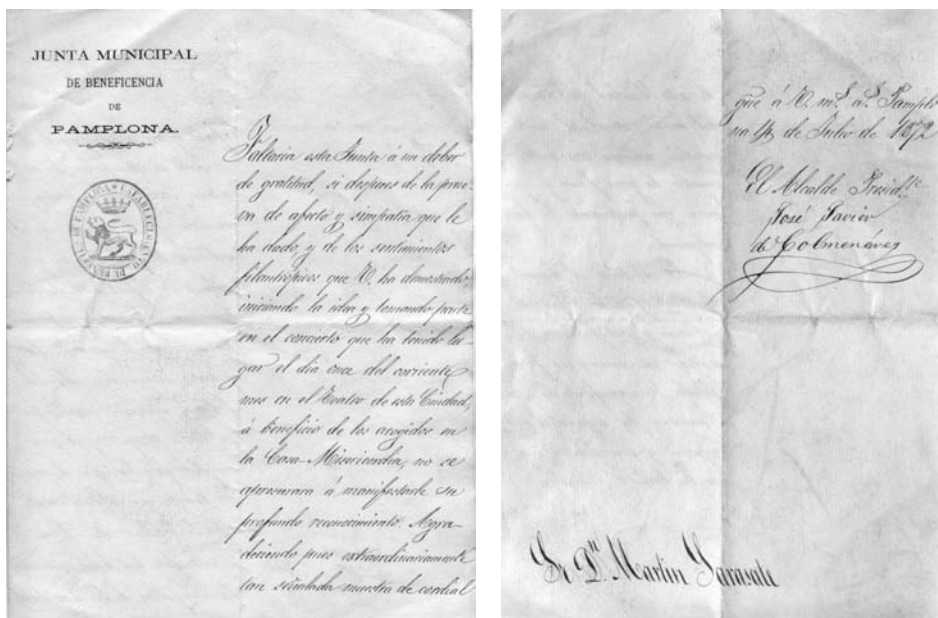 JUNTA MUNICIPAL
DE BENEFICENCIA
DE
PAMPLONA.
Faltaria esta Junta á un deber
de gratitud, si despues de la prue-
va de afecto y simpatia que le
ha dado, y de los sentimientos
filantrópicos que V. ha demostrado,
iniciando la idea y tomando parte
en el concierto que ha tenido lu-
gar el dia once del corriente
mes en el Teatro de esta Ciudad,
á beneficio de los acogidos en
la Casa-Misericordia, no se
apresurara á manifestarle su
profundo reconocimiento. Agra-
deciendo pues extraordinariamente
tan señalada muestra de cordial
gue á V. m.s a.s Pamplo
na 14 de Julio de 1872
El Alcalde Presid.te
José Javier
de Colmenáres
Sr. D.n Martin Sarasate